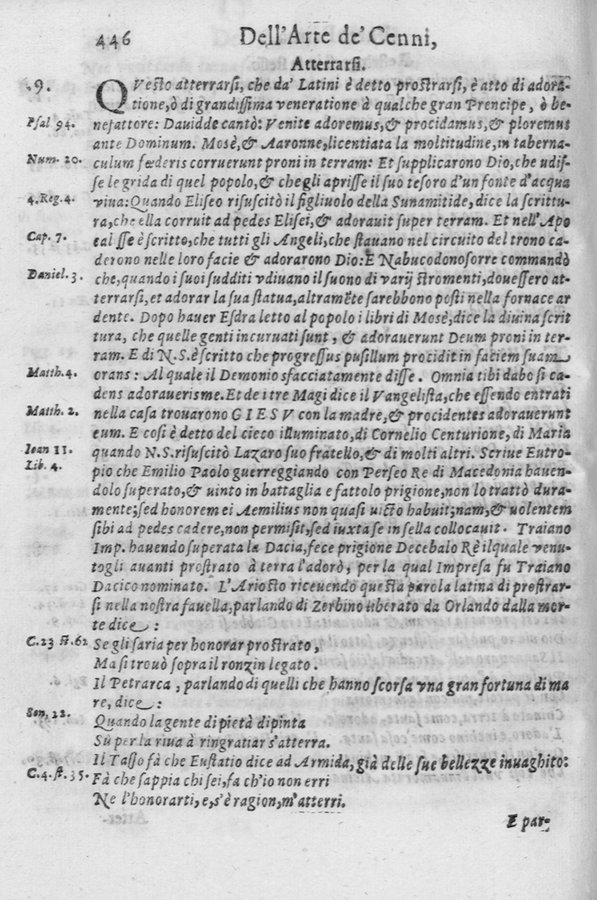 446 Dell'Arte de' Cenni,
Atterrarsi.
.9. QVesto atterrarsi, che da' Latini è detto prostrarsi, è atto di adora-
tione, ò di grandissima veneratione à qualche gran Prencipe, ò be-
Psal 94. nefattore: Davidde cantò: Venite adoremus, & procidamus, & ploremus
ante Dominum. Mosè, & Aaronne, licentiata la moltitudine, in taberna-
Num. 20. culum fœderis corruerunt proni in terram: Et supplicarono Dio, che udis-
se le grida di quel popolo, & che gli aprisse il suo tesoro d'un fonte d'acqua
4. Reg. 4. viva: Quando Eliseo risuscitò il figliuolo della Sunamitide, dice la scrittu-
ra, che ella corruit ad pedes Elisei, & adorauit super terram. Et nell'Apo
Cap. 7. calisse è scritto, che tutti gli Angeli, che stauano nel circuito del trono ca-
derono nelle loro facie & adorarono Dio: E Nabucodonosorre commandò
Daniel. 3. che, quando i suoi sudditi vdiuano il suono di varij stromenti, douessero at-
terrarsi, et adorar la sua statua, altramẽte sarebbono posti nella fornace ar
dente. Dopo hauer Esdra letto al popolo i libri di Mosè, dice la diuina scrit
tura, che quelle genti incuruati sunt, & adorauerunt Deum proni in ter-
ram. E di N.S. è scritto che progressus pusillum procidit in faciem suam
Matth. 4. orans: Al quale il Demonio sfacciatamente disse. Omnia tibi dabo si ca-
dens adorauerisme. Et de i tre Magi dice il Vangelista, che essendo entrati
Matth. 2. nella casa trouarono GIESV con la madre, & procidentes adorauerunt
eum. E cosi è detto del cieco illuminato, di Cornelio Centurione, di Maria
Ioan 11. quando N.S. risuscitò Lazaro suo fratello, & di molti altri. Scriue Eutro-
Lib. 4. pio che Emilio Paolo guerreggiando con Perseo Re di Macedonia hauen-
dolo superato, & uinto in battaglia e fattolo prigione, non lo trattò dura-
mente; sed honorem ei Aemilius non quasi uicto habuit; nam, & uolentem
sibi ad pedes cadere, non permisit, sed iuxta se in sella collocauit. Traiano
Imp. hauendo superata la Dacia, fece prigione Decebalo Rè il quale venu-
togli auanti prostrato à terra l'adorò, per la qual Impresa fu Traiano
Dacico nominato. L'Ariosto riceuendo questa parola latina di prostrar-
si nella nostra fauella, parlando di Zerbino liberato da Orlando dalla mor-
te dice:
C. 23 st. 62 Se gli saria per honorar prostrato,
Ma si trouò sopra il ronzin legato.
Il Petrarca, parlando di quelli che hanno scorsa vna gran fortuna di ma
re, dice:
Son. 22. Quando la gente di pietà dipinta
Su per la riua à ringratiar s'atterra.
Il Tasso fà che Eustatio dice ad Armida, già delle sue bellezze inuaghito:
C. 4. st. 35. Fà che sappia chi sei, fa ch'io non erri
Ne l'honorarti, e, s'è ragion, m'atterri.
E par-